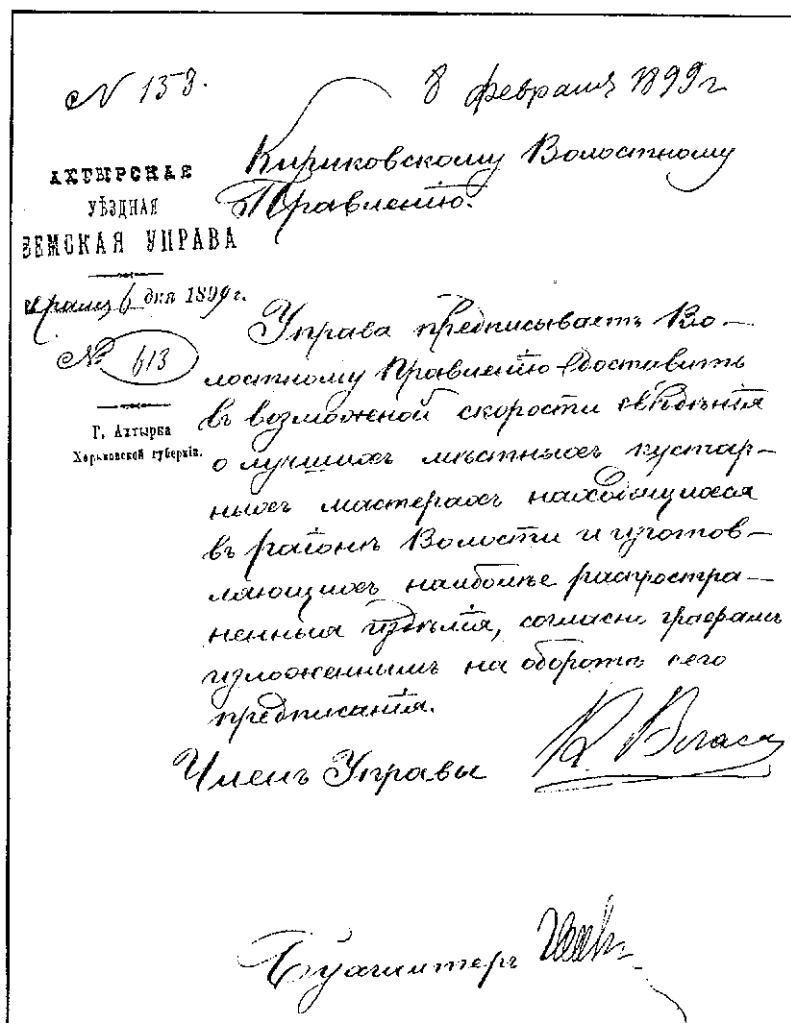 № 153.
8 февраля 1899 г
АХТЫРСКАЯ
УѢЗДНАЯ
ЗЕМСКАЯ УПРАВА
6 дня 1899 г.
№ 613
Г. Ахтырка
Харьковской губерніи.
Кириковскому Волостному
Правленію.
Управа предписываетъ Во-
лостному Правленію доставить
въ возможной скорости свѣдѣнія
о лучшихъ мѣстныхъ кустар-
ныхъ мастерахъ находящихся
въ районѣ Волости и изготов-
ляющихъ наиболѣе распростра-
ненныя издѣлія, согласно графамъ
изложеннымъ на оборотѣ сего
предписанія.
Членъ Управы
Бухгалтеръ